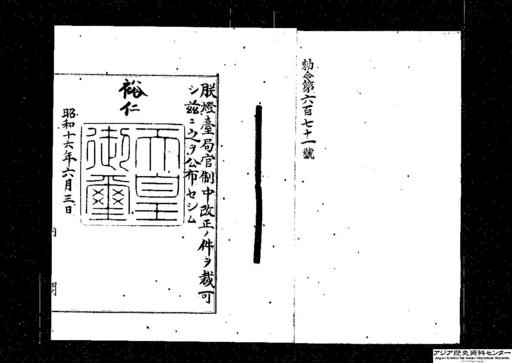 勅令第六百七十一號
朕燈臺局官制中改正ノ件ヲ裁可
シ茲ニ之ヲ公布セシム
裕仁
天皇
御璽
昭和十六年六月三日
アジア歴史資料センター
Japan Center for Asian Historical Records